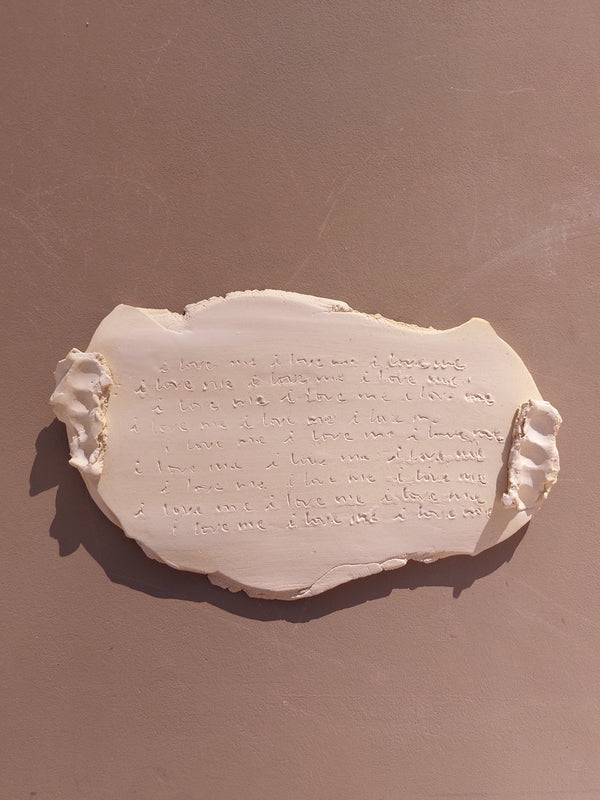 i love me i love me i love me
i love me i love me i love me
i love me i love me i love me
i love me i love me i love me
i love me i love me i love me
i love me i love me i love me
i love me i love me i love me
i love me i love me i love me
i love me i love me i love me